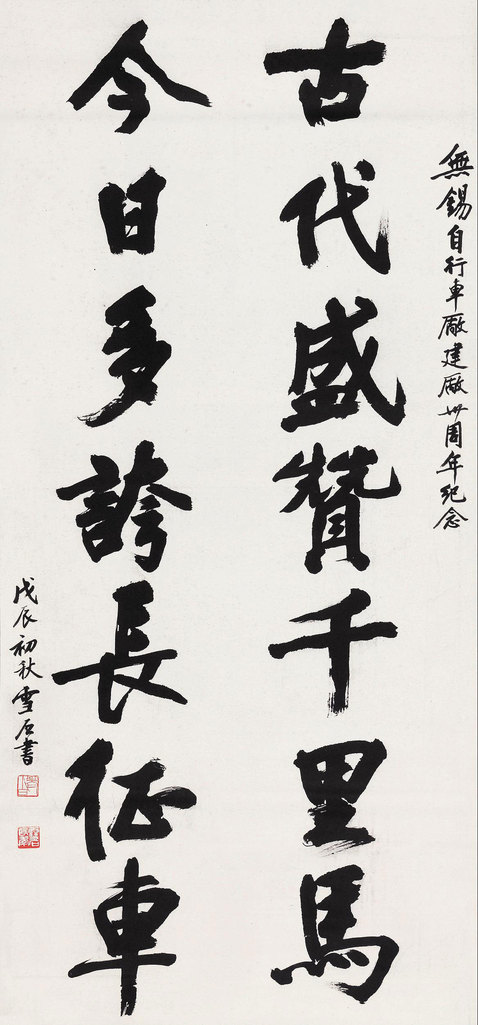 無錫自行車廠建廠卅周年紀念
古代盛贊千里馬
今日多誇長征車
戊辰初秋雪石書